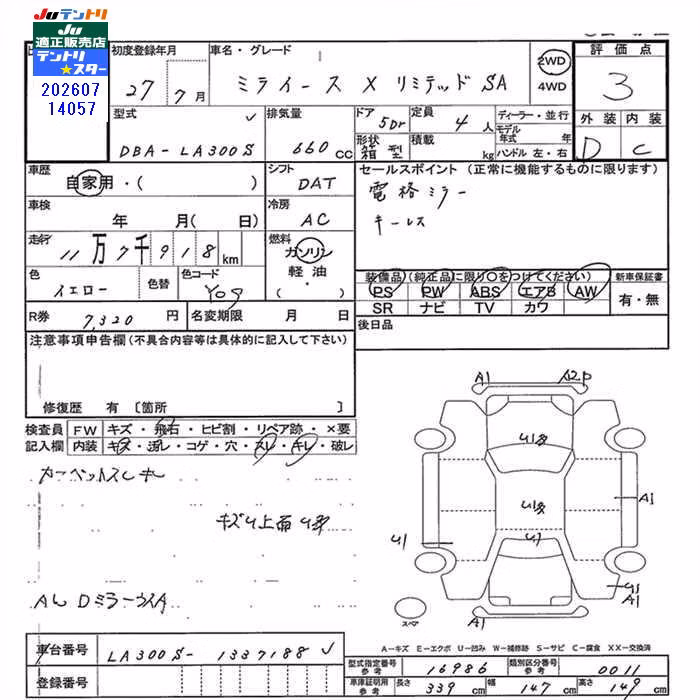 Juテントリ
Ju
適正販売店
テントリ
★スター
202607
14057
初度登録年月
27年 7月
車名・グレード
ミライース X リミテッド SA
2WD
4WD
評価点
3
外装 内装
D C
型式
DBA-LA300S
排気量
660cc
ドア
5Dr
形状
箱型
定員
4人
積載
kg
ディーラー・並行
モデル年式 年
ハンドル 左・右
車歴
自家用・( )
シフト
DAT
セールスポイント (正常に機能するものに限ります)
電格ミラー
キーレス
車検
年 月( 日)
冷房
AC
走行
11万7千918km
燃料
ガソリン
軽油
( ・ )
色
イエロー
色替
色コード
Y09
装備品(純正品に限り○をつけてください)
PS PW ABS エアB AW
SR ナビ TV カワ
新車保証書
有・無
R券 7,320円
名変期限 月 日
後日品
注意事項申告欄(不具合内容等は具体的に記入して下さい)
修復歴 有〔箇所 〕
検査員
記入欄
FW キズ・飛石・ヒビ割・リペア跡・×要
内装 キズ・汚レ・コゲ・穴・スレ・キレ・破レ
カーペットスレキレ
キズU上面U多
A1 A2P
U1多
U1多
U1
A1
U1
U1
A1
A1
スペア
A-キズ E-エクボ U-凹み W-補修跡 S-サビ C-腐食 XX-交換済
車台番号 LA300S-1337188
登録番号
型式指定番号 参考 16986
類別区分番号 参考 0011
車庫証明用 参考 長さ 339cm 幅 147cm 高さ 149cm